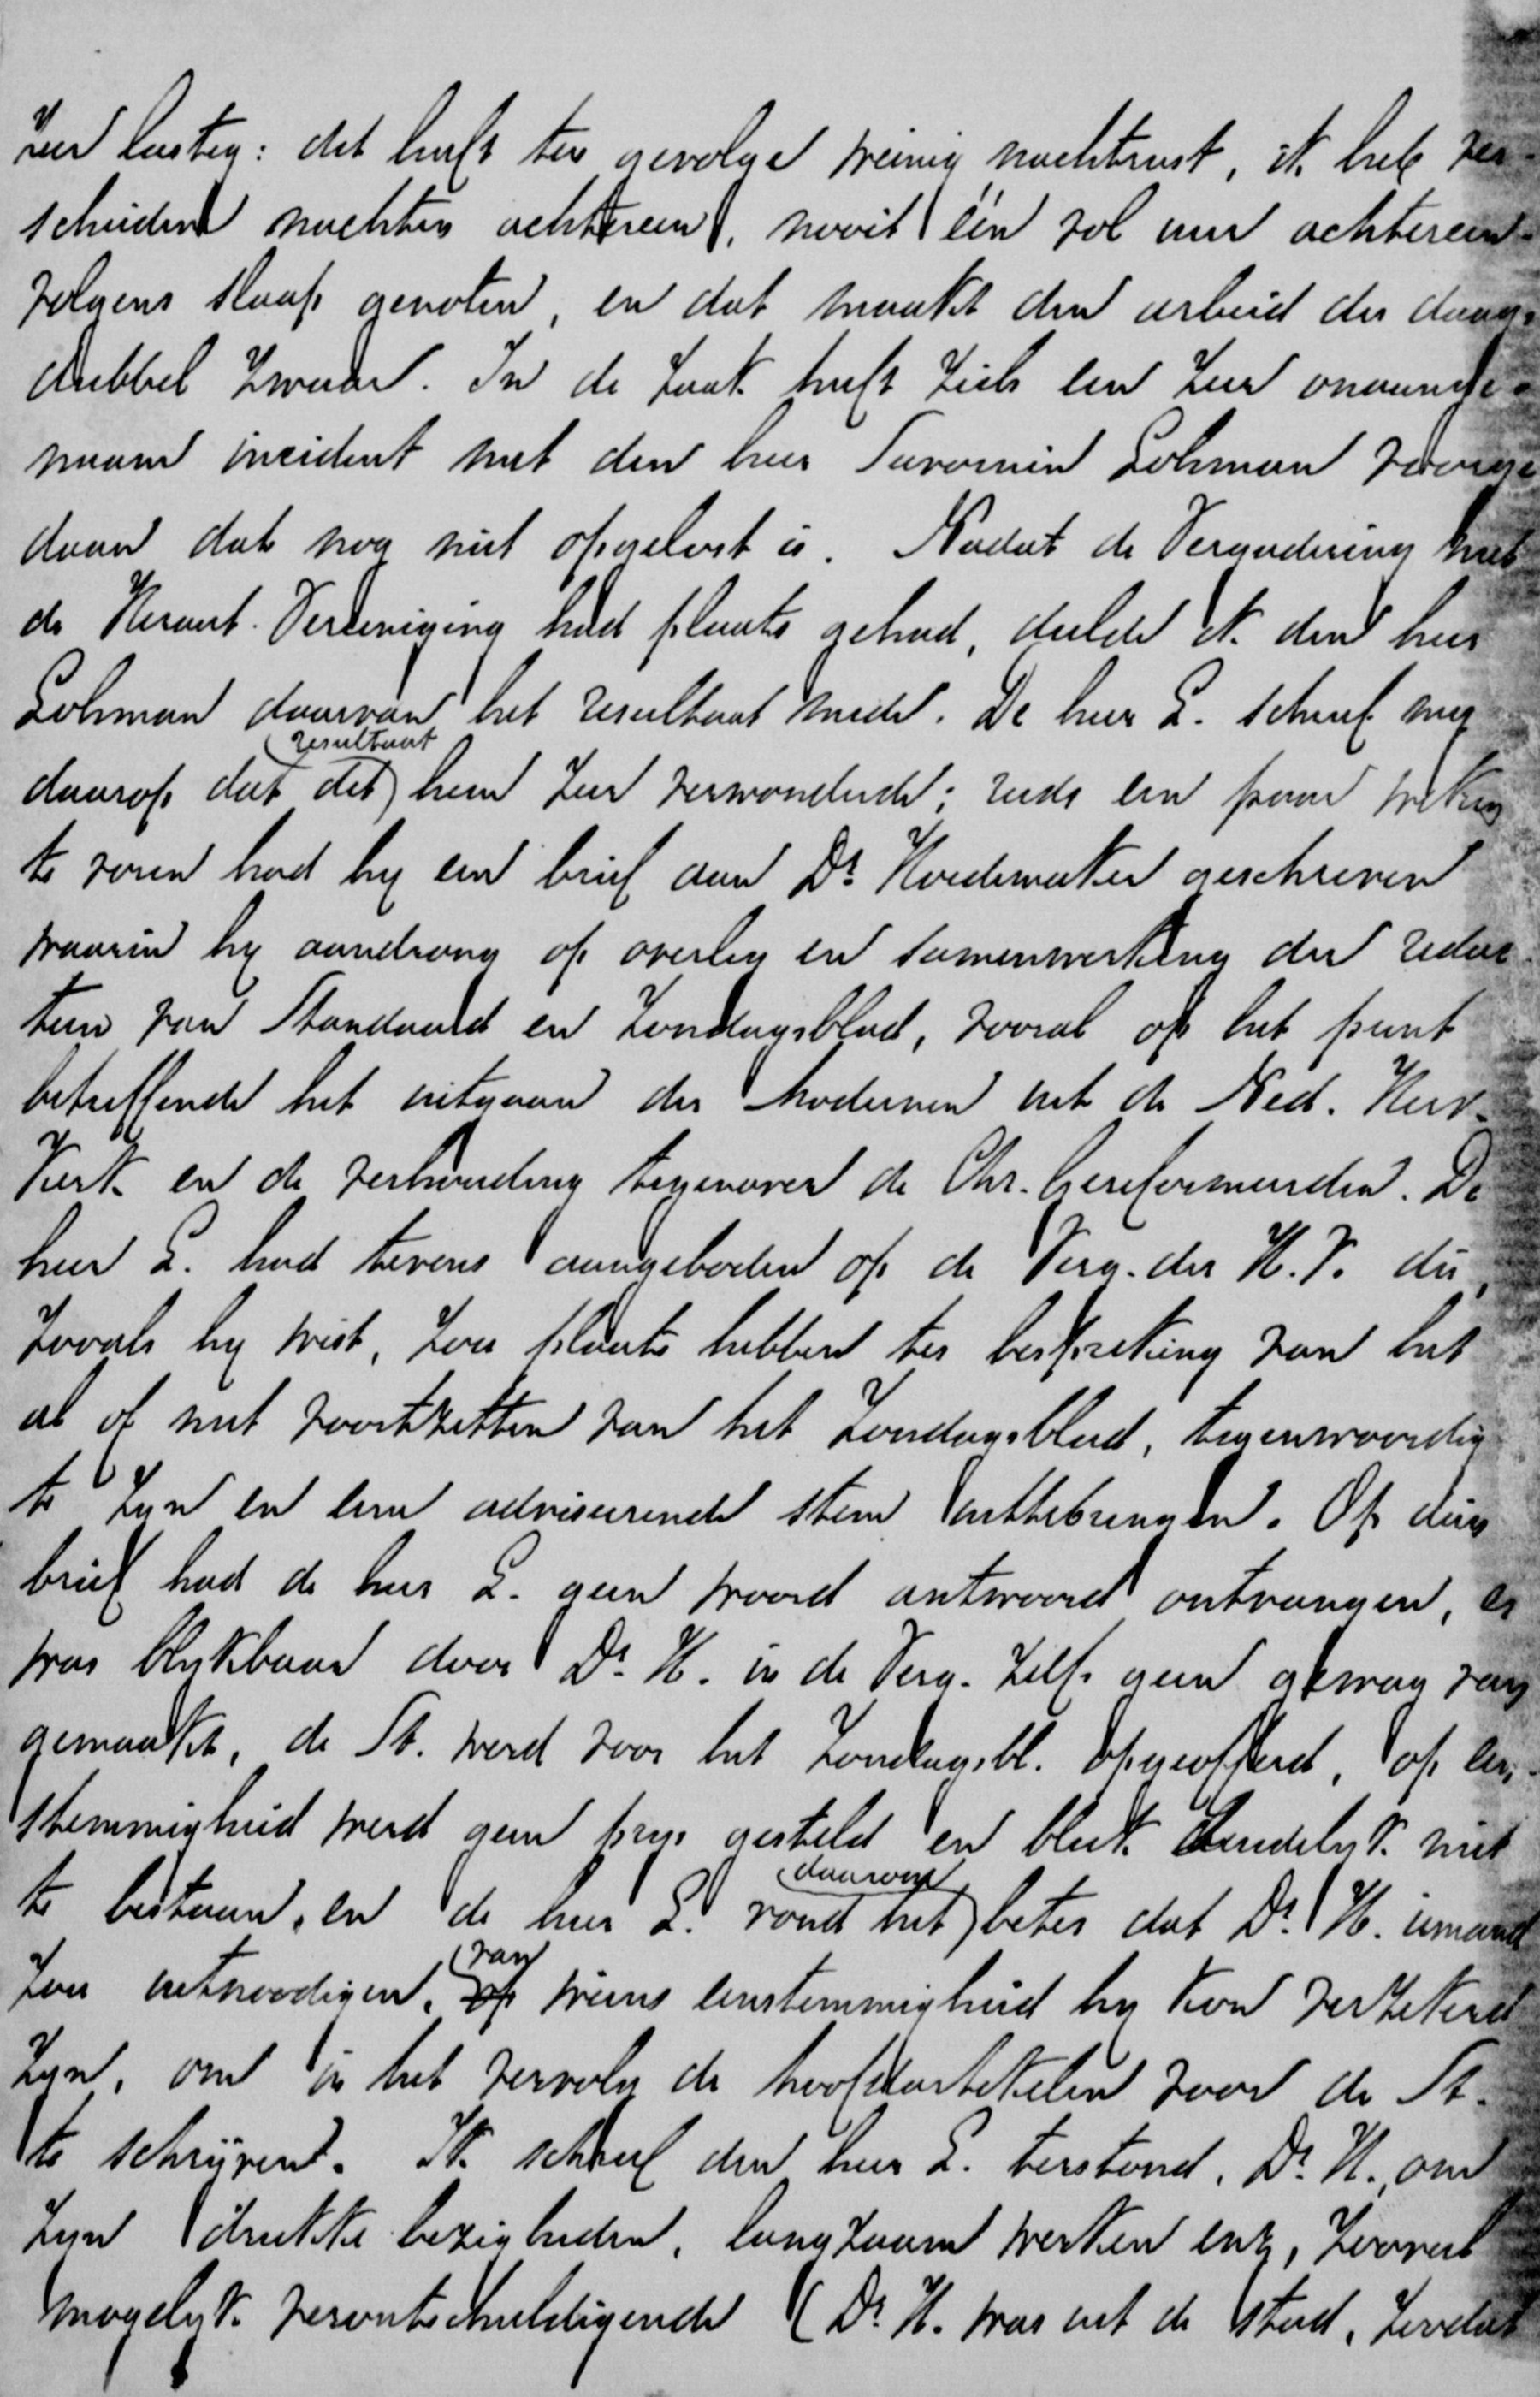 zeer lastig: dit heeft ten gevolge weinig nachtrust, ik heb ver-
scheidene nachten achtereen, nooit één vol uur achtereen-
volgens slaap genoten, en dat maakt den arbeid des daags
dubbel zwaar. In de zaak heeft zich een zeer onaange-
naam incident met den heer Savornin Lohman voorge-
daan dat nog niet opgelost is. Nadat de Vergadering met
de Heraut. Vereeniging had plaats gehad, deelde ik den heer
Lohman daarvan het resultaat mede. De heer L. schreef mij
daarop dat dit (resultaat) hem zeer verwonderde; reeds een paar weken
te voren had hij een brief aan Dr. Hoedemaker geschreven
waarin hij aandrong op overleg en samenwerking der redac-
tien van Standaard en Zondagsblad, vooral op het punt
betreffende het uitgaan der modernen uit de Ned. Herv.
Kerk en de verhouding tegenover de Chr. Gereformeerden. De
heer L. had tevens aangeboden op de Verg. der H.V. die,
zooals hij wist, zou plaats hebben ter bespreking van het
al of niet voortzetten van het Zondagsblad, tegenwoordig
te zijn en eene adviseerende stem uittebrengen. Op dien
brief had de heer L. geen woord antwoord ontvangen, er
was blijkbaar door Dr. H. in de Verg. zelfs geen gewag van
gemaakt, de St. werd voor het Zondagsbl. opgeofferd, op een-
stemmigheid werd geen prijs gesteld en bleek eindelijk niet
te bestaan, en de heer L. vond het (daarom) beter dat Dr. H. iemand
zou uitnoodigen, op (van) wiens eenstemmigheid hij kon verzekerd
zijn, om in het vervolg de hoofdartikelen voor de St.
te schrijven. Ik schreef den heer L. terstond, Dr. H., om
zijn drukke bezigheden, langzaam werken enz, zooveel
mogelijk verontschuldigende (Dr. H. was uit de stad, zoodat